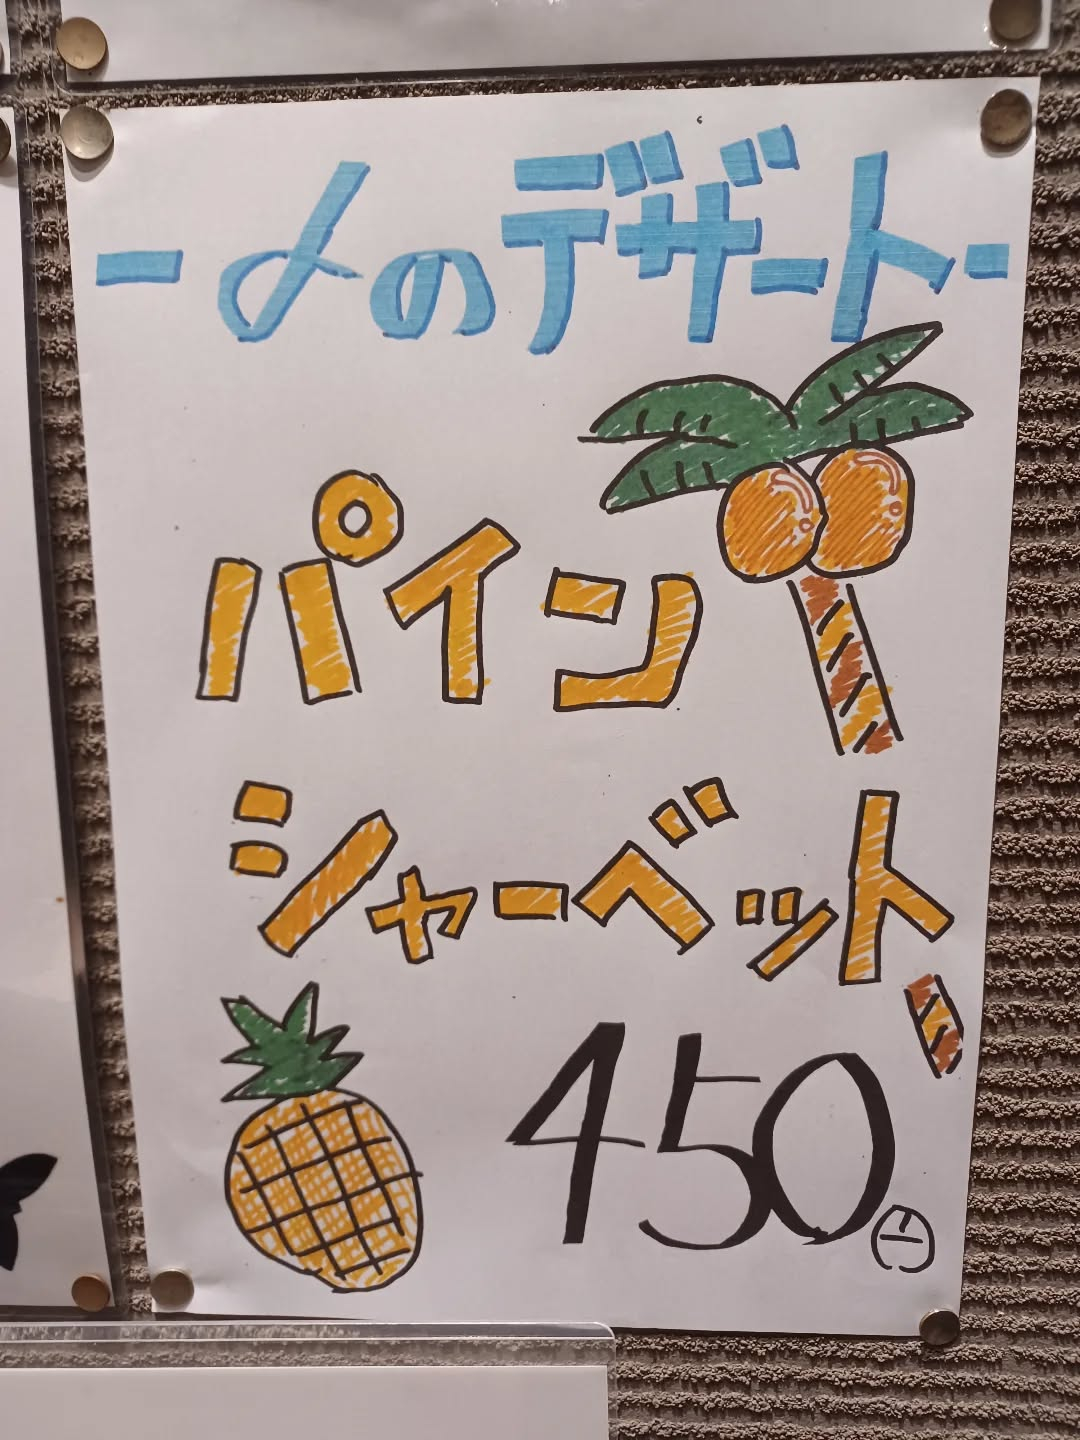 -〆のデザート-
パイン
シャーベット
450円